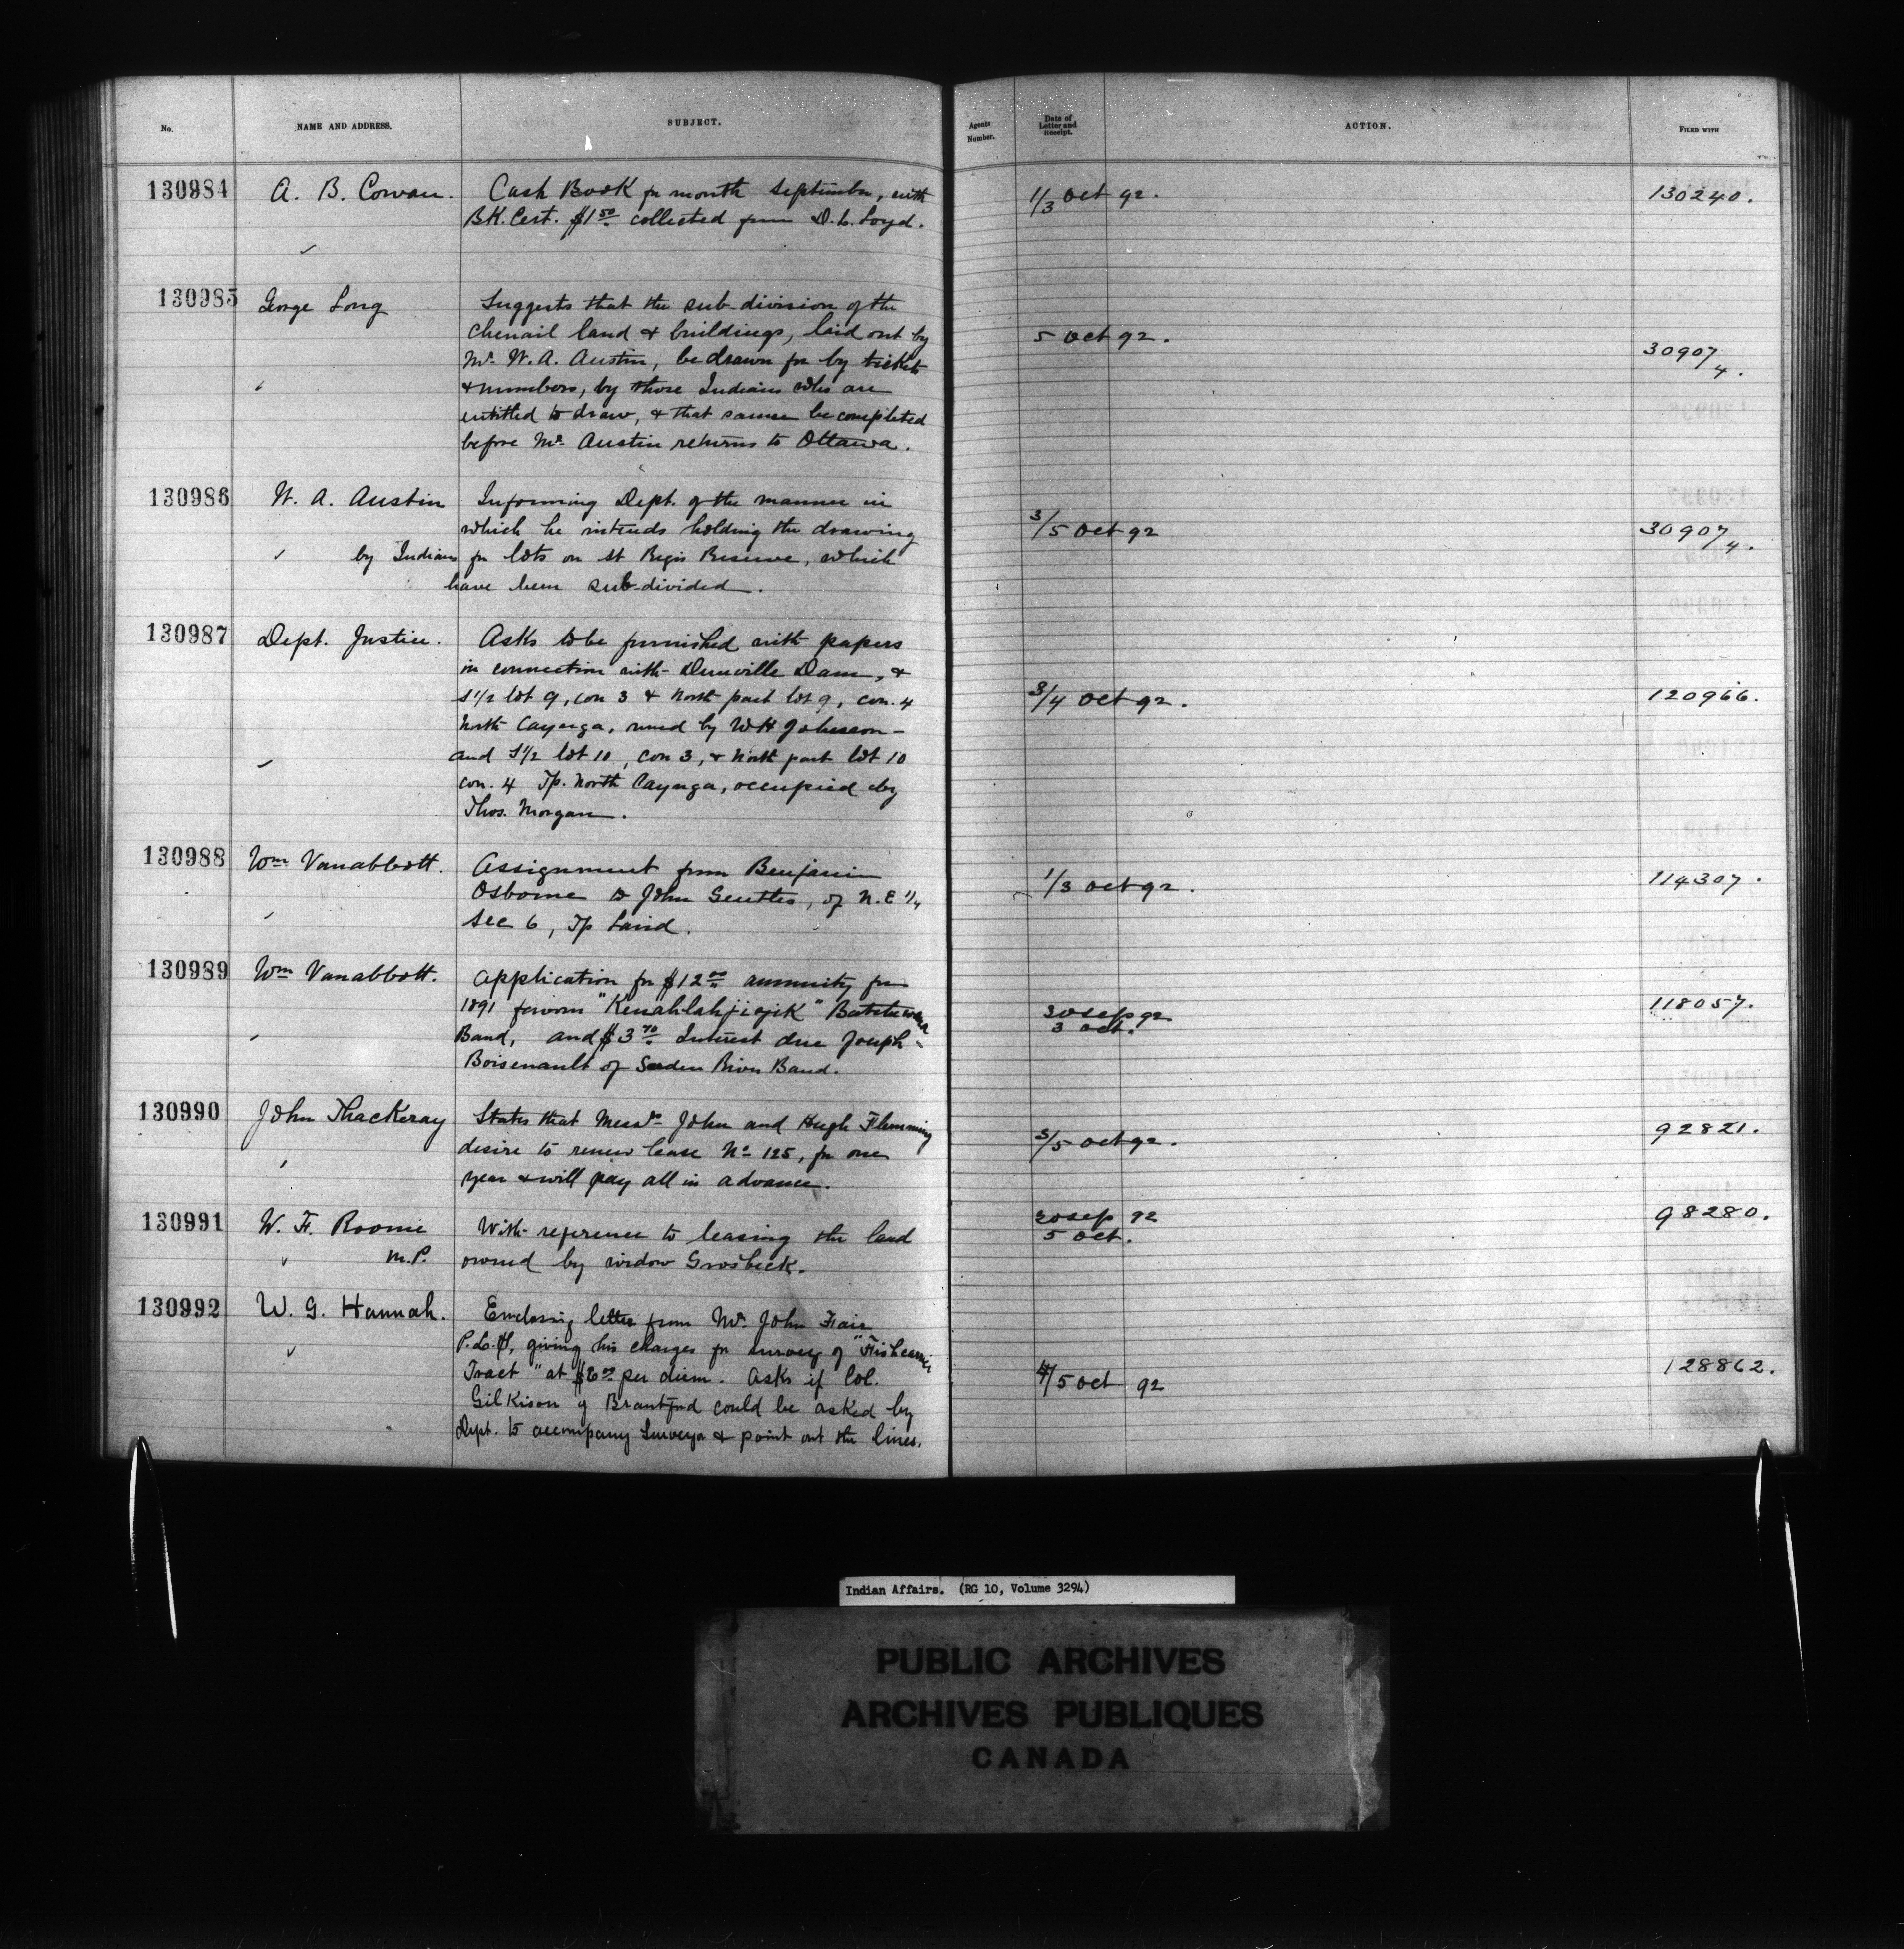 No. NAME AND ADDRESS. SUBJECT. Agents Number. Date of Letter and Receipt. ACTION. FILED WITH
130984 A. B. Cowan. Cash Book for month September, with 1/3 Oct 92. 130240.
BK. Cert. $1 50 collected from D. L. Loyd.
130985 George Long Suggests that the sub-division of the
Chenail land & buildings, laid out by 5 Oct 92.
Mr. W. A. Austin, be drawn for by tickets 30907/4.
& numbers, by those Indians who are
entitled to draw, & that same be completed
before Mr. Austin returns to Ottawa.
130986 W. A. Austin Informing Dept. of the manner in
which he intends holding the drawing 3/5 Oct 92 30907/4.
by Indians for lots on St Regis Reserve, which
have been sub-divided.
130987 Dept. Justice. Asks to be furnished with papers
in connection with Dunville Dam, &
S 1/2 lot 9, con 3 & North part lot 9, con. 4 3/4 Oct 92. 120966.
North Cayuga, owned by W H Johnson -
and S 1/2 lot 10, con 3, & North part lot 10
con. 4 Tp. North Cayuga, occupied by
Thos. Morgan.
130988 Wm Vanabbott. Assignment from Benjamin
Osborne to John Gentles, of N. E 1/4 1/3 Oct 92. 114307.
Sec 6, Tp Laird.
130989 Wm Vanabbott. Application for $12 00 annuity for
1891 for "Kenahlahjigik" Batchewana 30 Sep 92 118057.
Band, and $3 70 Interest due Joseph 3 Oct.
Boisenault of Garden River Band.
130990 John Thackeray States that Messrs John and Hugh Flemming
desire to renew lease No 125, for one 3/5 Oct 92. 92821.
year & will pay all in advance.
130991 W. F. Roome With reference to leasing the land 30 Sep 92 98280.
M.P. owned by widow Grosbeck. 5 Oct.
130992 W. G. Hannah. Enclosing letter from Mr. John Fair
P.L.S, giving his charges for survey of "Fishcarrier
Tract" at $6 00 per diem. Asks if Col. 4/5 Oct 92 128862.
Gilkison of Brantford could be asked by
Dept. to accompany Surveyor & point out the lines.
Indian Affairs. (RG 10, Volume 3294)
PUBLIC ARCHIVES
ARCHIVES PUBLIQUES
CANADA